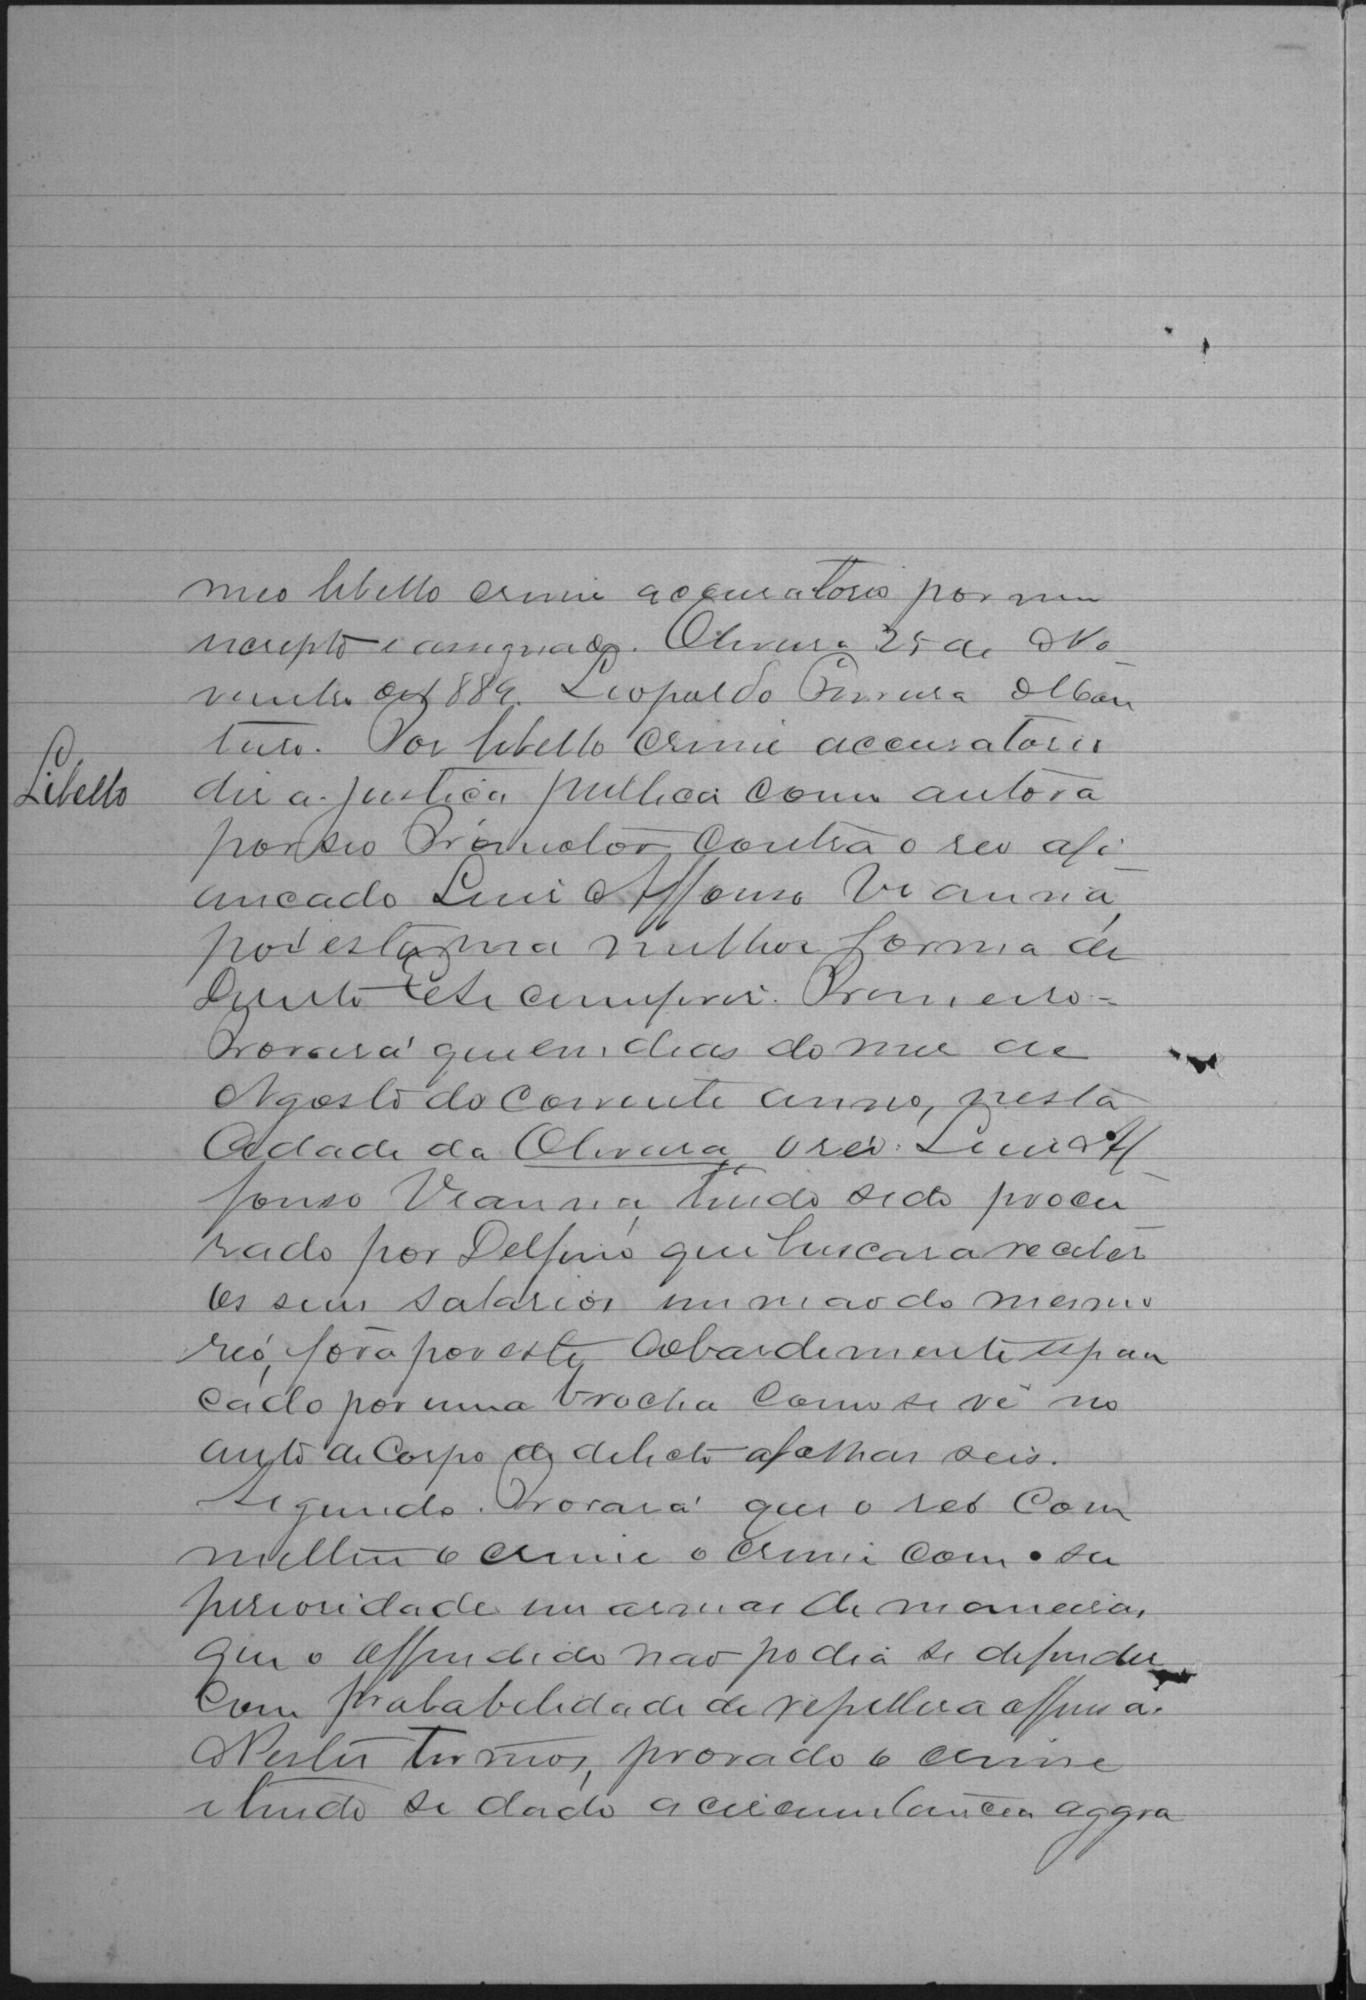 meo libello crime accusatorio por mim
escripto e assignado. Oliveira 25 de No
vembro de 1889. Leopoldo Ferreira Mon
teiro. Por libello crime accusatorio
Libello
diz a justiça publica como autora
por seo Promotor contra o reo afi
ançado Luiz Affonso Vianna,
por esta na melhor forma de
Direito E. S. e cumprir. Primeiro =
Provará que em dias do mez de
Agosto do corrente anno, nesta
Cidade da Oliveira, o reo Luiz Af
fonso Vianna, tendo sido procu
rado por Delfino que buscava receber
os seus salarios em mão do mesmo
reo, fora por este cobardemente espan
cado por uma brocha como se vê no
auto de Corpo de delicto a folhas seis.
Segundo. Provará que o reo com
metteu o crime o crime com su
perioridade em armas de maneira,
que o offendido não podia se defender
com probabelidade de repellir a offensa.
Nestes termos, provado o crime
e tendo se dado a circumstancia aggra